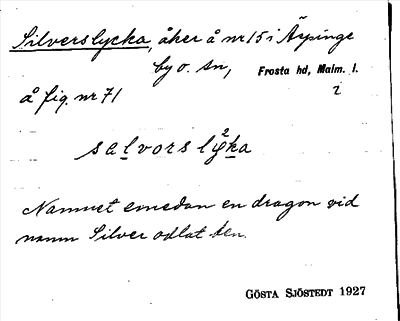 Silverslycka, åker å nr 15 i Ärpinge
by o. sn, Frosta hd, Malm. l.
å fig. nr 71 i
salvorslyka
Namnet emedan en dragon vid
namn Silver odlat den.
GÖSTA SJÖSTEDT 1927